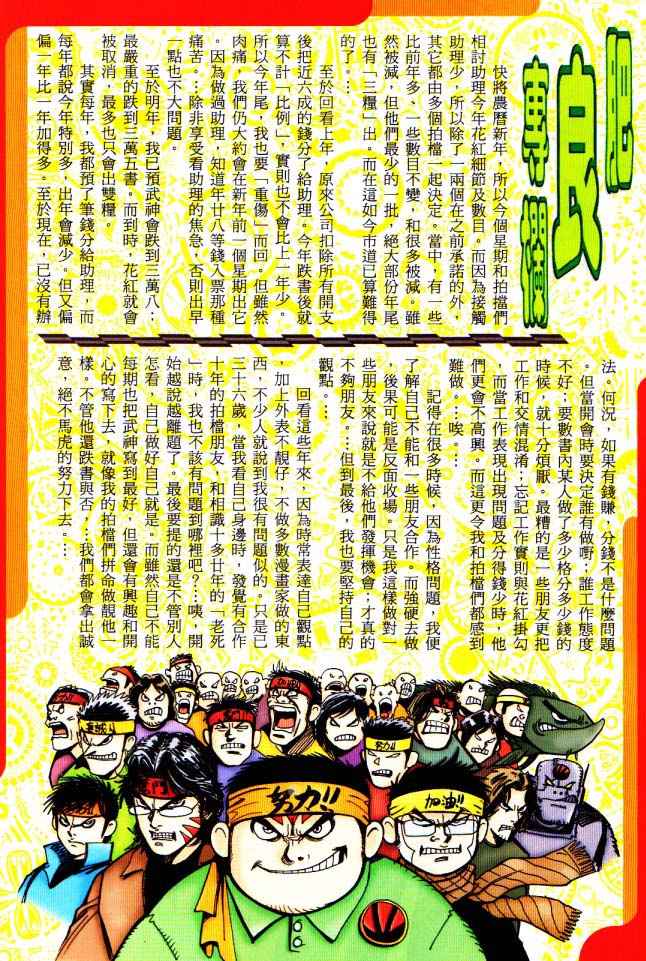 肥良專欄
快將農曆新年，所以今個星期和拍檔們
相討助理今年花紅細節及數目。而因為接觸
助理少，所以除了一兩個在之前承諾的外，
其它都由多個拍檔一起決定。當中，有一些
比前年多、一些數目不變，和很多被減。雖
然被減，但他們最少的一批，絕大部份年尾
也有「三糧」出。而在這如今市道已算難得
的了。…
至於回看上年，原來公司扣除所有開支
後把近六成的錢分了給助理。今年跌書後就
算不計「比例」，實則也不會比上一年少。
所以今年尾，我也要「重傷」而回。但雖然
肉痛，我們仍大約會在新年前一個星期出它
。因為做過助理，知道年廿八等錢入票那種
痛苦。…除非享受看助理的焦急，否則出早
一點也不大問題。
至於明年，我已預武神會跌到三萬八：
最嚴重的跌到三萬五書。而到時，花紅就會
被取消，最多也只會出雙糧。
其實每年，我都預了筆錢分給助理，而
每年都說今年特別多，出年會減少。但又偏
偏一年比一年加得多。至於現在，已沒有辦
法。何況，如果有錢賺，分錢不是什麼問題
。但當開會時要決定誰有做嘢；誰工作態度
不好；要數書內某人做了多少格分多少錢的
時候，就十分煩厭。最糟的是一些朋友更把
工作和交情混淆；忘記工作實則與花紅掛勾
，而當工作表現出現問題及分得錢少時，他
們更會不高興。而這更令我和拍檔們都感到
難做。…唉。…
記得在很多時候，因為性格問題，我便
了解自己不能和一些朋友合作。而強硬去做
，後果可能是反面收場。只是我這樣做對一
些朋友來說就是不給他們發揮機會；才真的
不夠朋友。…但到最後，我也要堅持自己的
觀點。…
回看這些年來，因為時常表達自己觀點
，加上外表不靚仔，不做多數漫畫家做的東
西，不少人就說到我很有問題似的。只是已
三十六歲，當我看自己身邊時，發覺有合作
十年的拍檔朋友，和相識十多廿年的「老死
」時，我也不該有問題到哪裡吧？…咦，開
始越說越離題了。最後要提的還是不管別人
怎看，自己做好自己就是。而雖然自己不能
每期也把武神寫到最好，但還會有興趣和開
心的寫下去，就像我的拍檔們拼命做靚他一
樣。不管他還跌書與否，…我們都會拿出誠
意，絕不馬虎的努力下去。…
努力!!
努力!!
加油!!
努力!!